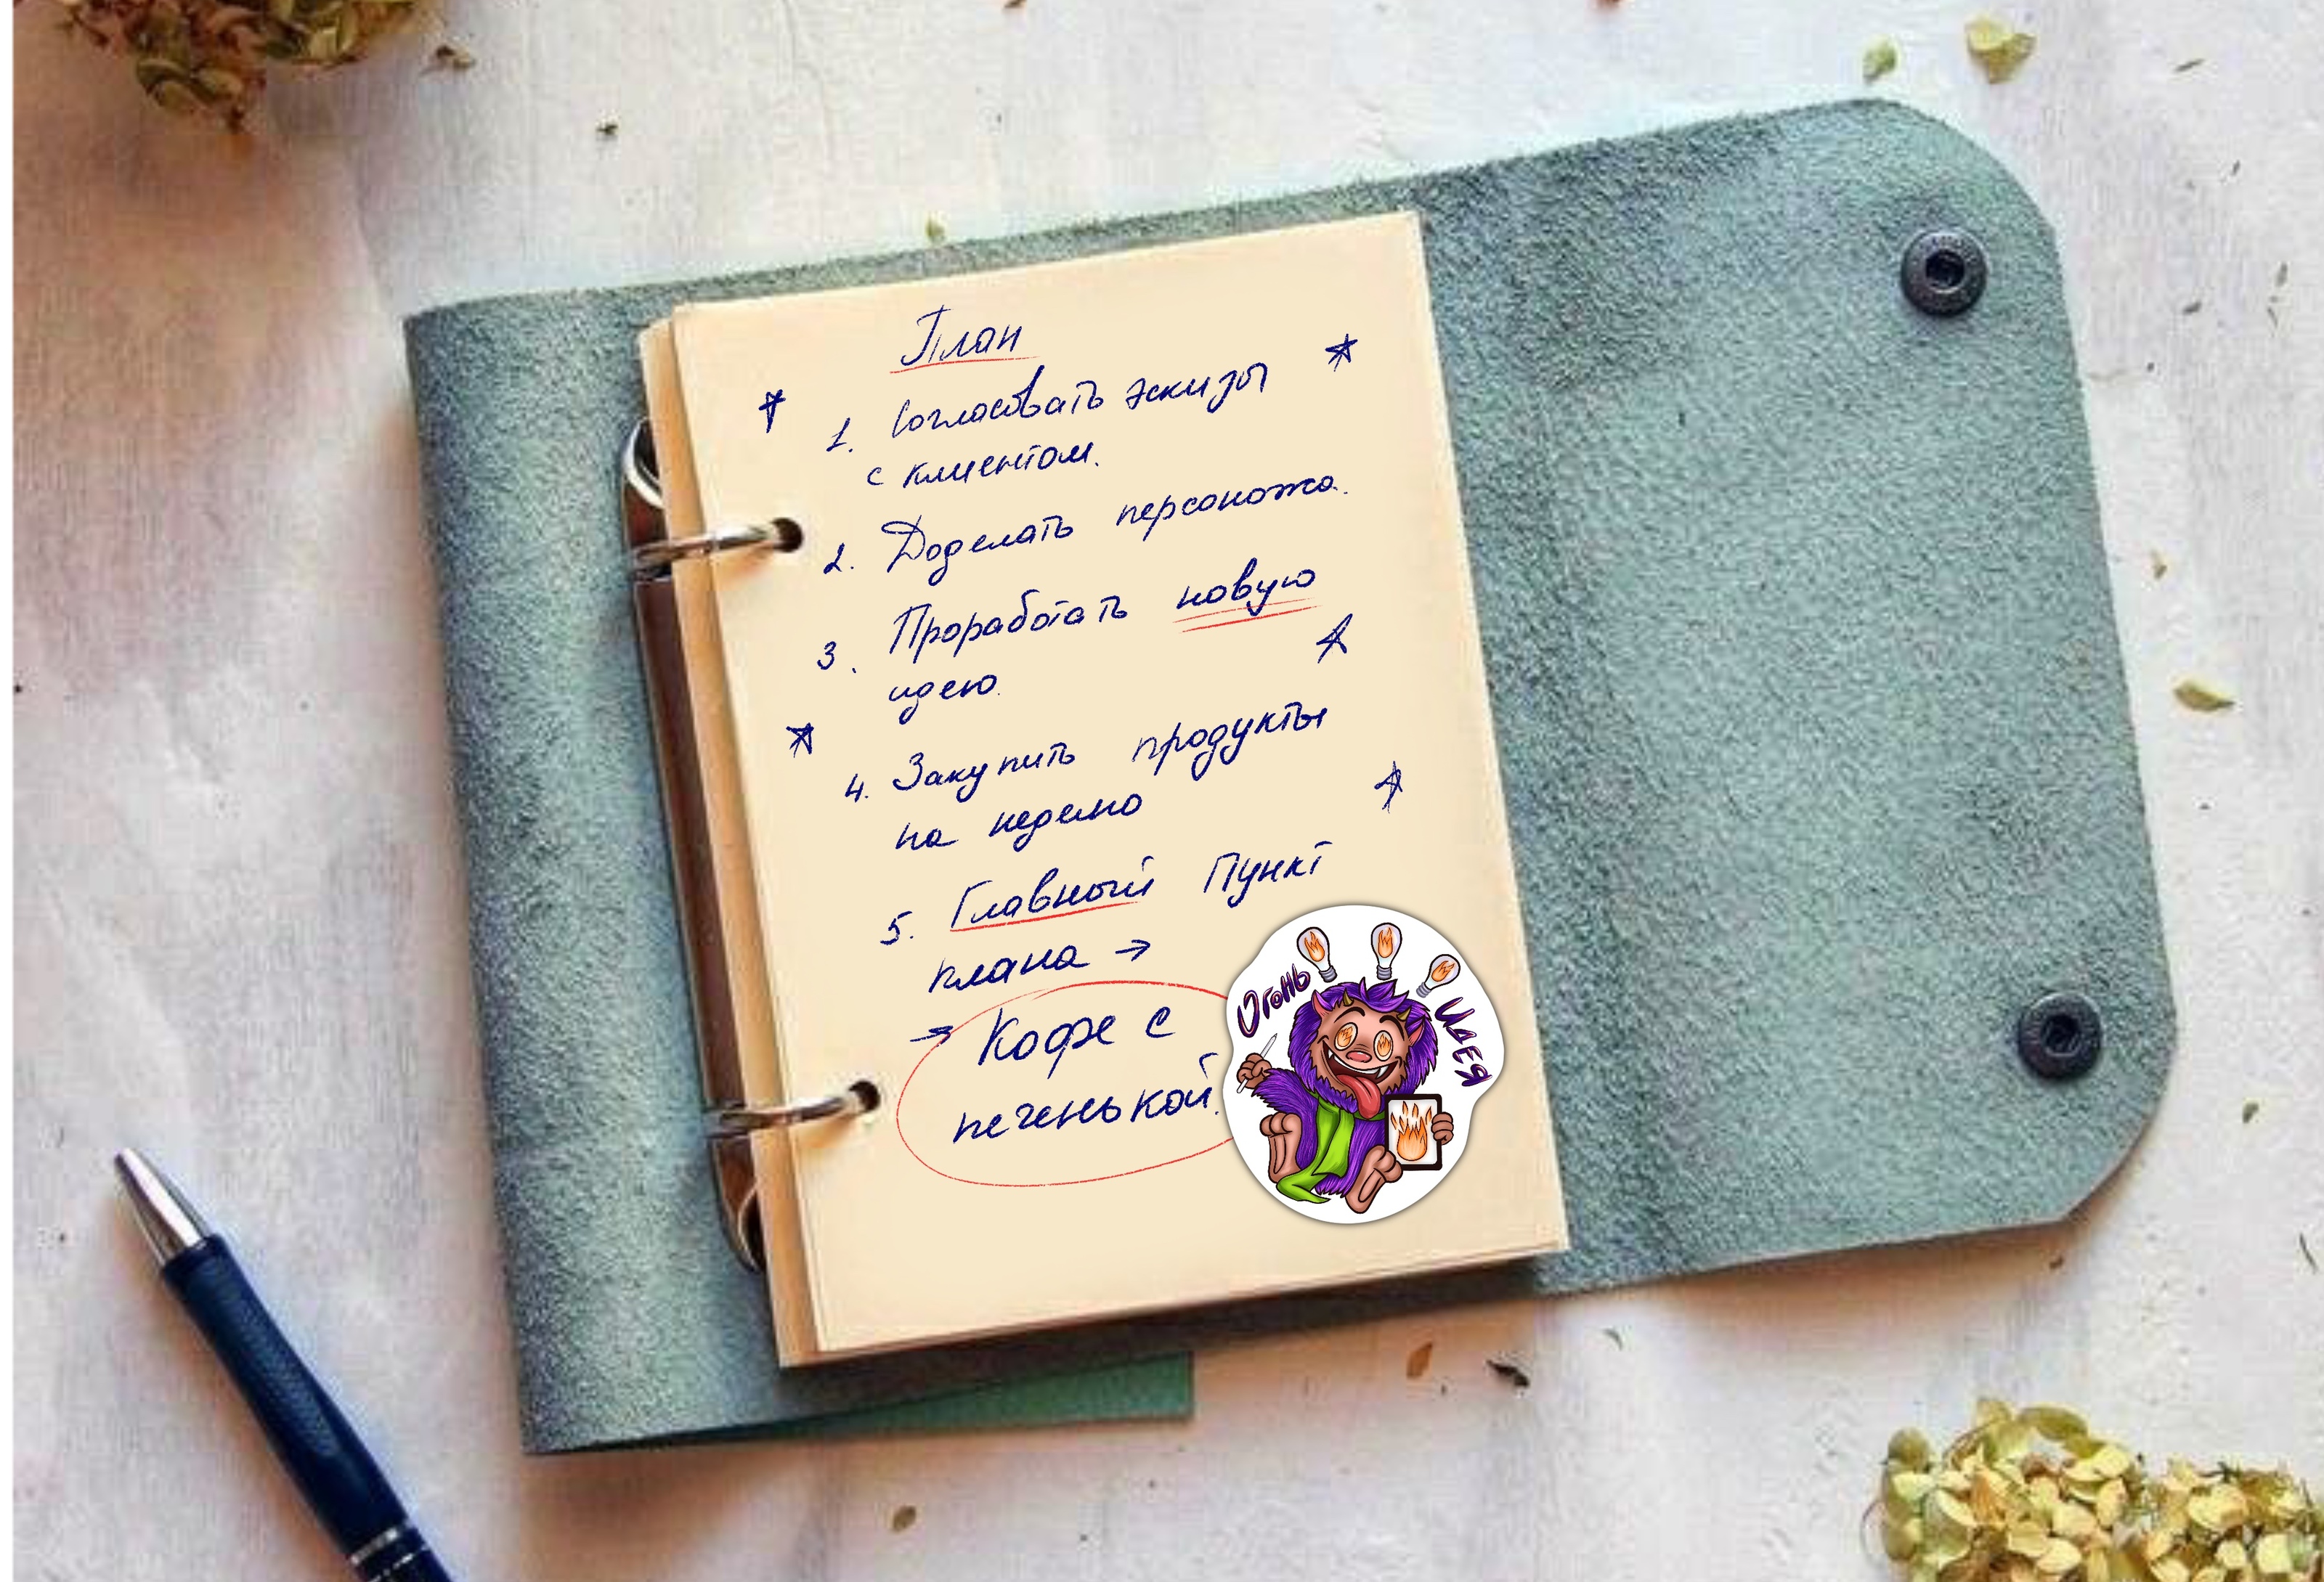 План
1. Согласовать эскизы
с клиентом.
2. Доделать персонажа.
3. Проработать новую
идею.
4. Закупить продукты
на неделю
5. Главный пункт
плана →
→ Кофе с
печенькой.
Огонь Идея